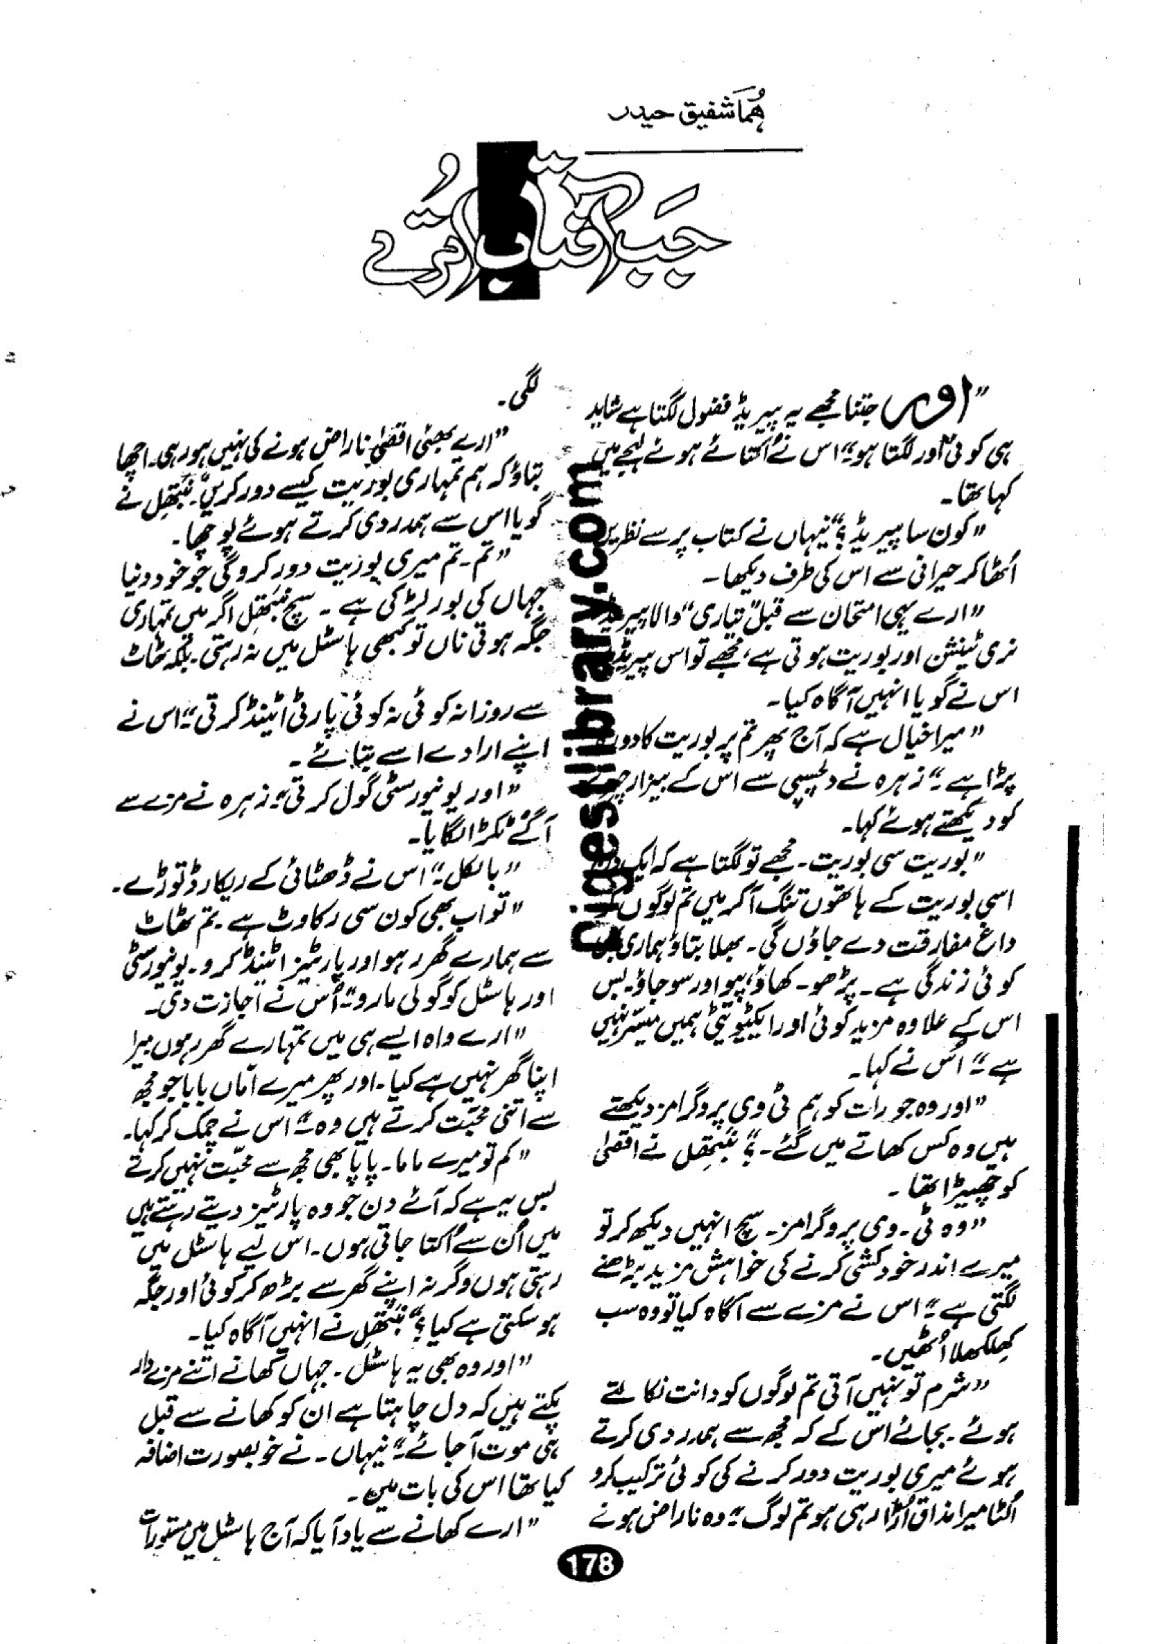 ہُما شفیق حیدر
جَب آفتاب اُترے
”اور جتنا مجھے یہ پیریڈ فضول لگتا ہے شاید
ہی کوئی اور لگتا ہو“ اس نے اُکتائے ہوئے لہجے میں
کہا تھا۔
”کون سا پیریڈ؟“ نیہاں نے کتاب پر سے نظریں
اُٹھا کر حیرانی سے اس کی طرف دیکھا۔
”ارے یہی امتحان سے قبل ”تیاری“ والا پیریڈ
نری ٹینشن اور بوریت ہوتی ہے، مجھے تو اس پیریڈ
اس نے گویا انہیں آگاہ کیا۔
”میرا خیال ہے کہ آج پھر تم پر بوریت کا دورہ
پڑا ہے“ زہرہ نے دلچسپی سے اس کے بیزار چہرے
کو دیکھتے ہوئے کہا۔
”بوریت سی بوریت۔ مجھے تو لگتا ہے کہ ایک دن
اسی بوریت کے ہاتھوں تنگ آ کر میں تم لوگوں کو
داغِ مفارقت دے جاؤں گی۔ بھلا بتاؤ ہماری بھی
کوئی زندگی ہے۔ پڑھو۔ کھاؤ، پیو اور سو جاؤ۔ بس
اس کے علاوہ مزید کوئی اور ایکٹیویٹی ہمیں میسّر نہیں
ہے“ اُس نے کہا۔
”اور وہ جو رات کو ہم ٹی وی پروگرامز دیکھتے
ہیں وہ کس کھاتے میں گئے۔؟“ نَبتھل نے اقصیٰ
کو چھیڑا تھا۔
”وہ ٹی۔ وی پروگرامز۔ سچ انہیں دیکھ کر تو
میرے اندر خودکشی کرنے کی خواہش مزید بڑھنے
لگتی ہے“ اس نے مزے سے آگاہ کیا تو وہ سب
کِھلکھلا اُٹھیں۔
”شرم تو نہیں آتی تم لوگوں کو دانت نکالتے
ہوئے۔ بجائے اس کے کہ مجھ سے ہمدردی کرتے
ہوئے میری بوریت دور کرنے کی کوئی ترکیب کرو
اُلٹا میرا مذاق اُڑا رہی ہو تم لوگ“ وہ ناراض ہونے
لگی۔
”ارے بھئی اقصیٰ ناراض ہونے کی نہیں ہو رہی۔ اچھا
بتاؤ کہ ہم تمہاری بوریت کیسے دور کریں“ نَبتھل نے
گویا اس سے ہمدردی کرتے ہوئے پوچھا۔
”تم۔ تم میری بوریت دور کرو گی جو خود دنیا
جہاں کی بور لڑکی ہے۔ سچ نَبتھل اگر میں تمہاری
جگہ ہوتی ناں تو کبھی ہاسٹل میں نہ رہتی۔ بلکہ ٹھاٹ
سے روزانہ کوئی نہ کوئی پارٹی اٹینڈ کرتی“ اس نے
اپنے ارادے اسے بتائے۔
”اور یونیورسٹی گول کرتی“ زہرہ نے مزے سے
آگے ٹکڑا لگایا۔
”بالکل“ اس نے ڈھٹائی کے ریکارڈ توڑے۔
”تو اب بھی کون سی رکاوٹ ہے۔ تم ٹھاٹ
سے ہمارے گھر رہو اور پارٹیز اٹینڈ کرو۔ یونیورسٹی
اور ہاسٹل کو گولی مارو“ اُس نے اجازت دی۔
”ارے واہ ایسے ہی میں تمہارے گھر رہوں میرا
اپنا گھر نہیں ہے کیا۔ اور پھر میرے اماں بابا جو مجھ
سے اتنی محبّت کرتے ہیں وہ“ اس نے چمک کر کہا۔
”کم تو میرے ماما۔ پاپا بھی مجھ سے محبّت نہیں کرتے
بس یہ ہے کہ آئے دن جو وہ پارٹیز دیتے رہتے ہیں
میں اُن سے اُکتا جاتی ہوں۔ اس لیے ہاسٹل میں
رہتی ہوں وگرنہ اپنے گھر سے بڑھ کر کوئی اور جگہ
ہو سکتی ہے کیا؟“ نَبتھل نے انہیں آگاہ کیا۔
”اور وہ بھی یہ ہاسٹل۔ جہاں کھانے اتنے مزے دار
پکتے ہیں کہ دل چاہتا ہے ان کو کھانے سے قبل
ہی موت آ جائے“ نیہاں۔ نے خوبصورت اضافہ
کیا تھا اس کی بات میں۔
”ارے کھانے سے یاد آیا کہ آج ہاسٹل میں مستورات
Digestlibrary.com
178